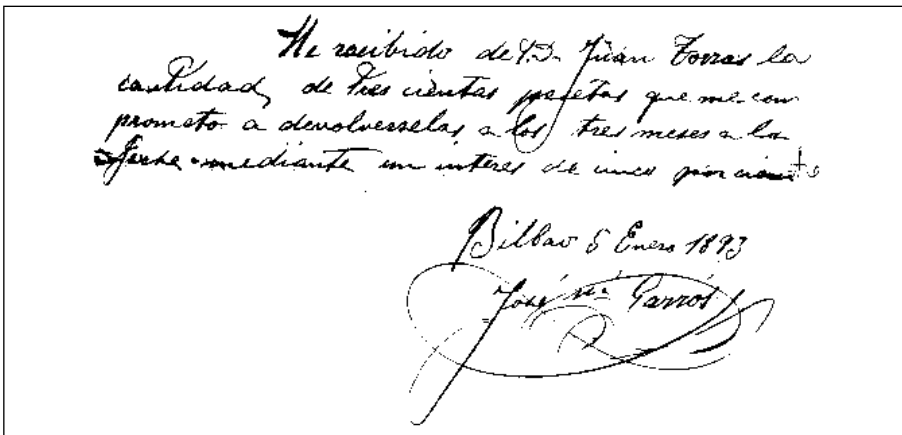 He recibido de D. Juan Torras la
cantidad, de tres cientas pesetas que me com
prometo a devolverselas a los tres meses a la
fecha mediante un interes de cinco por ciento
Bilbao 5 Enero 1893
José Mª Garrós